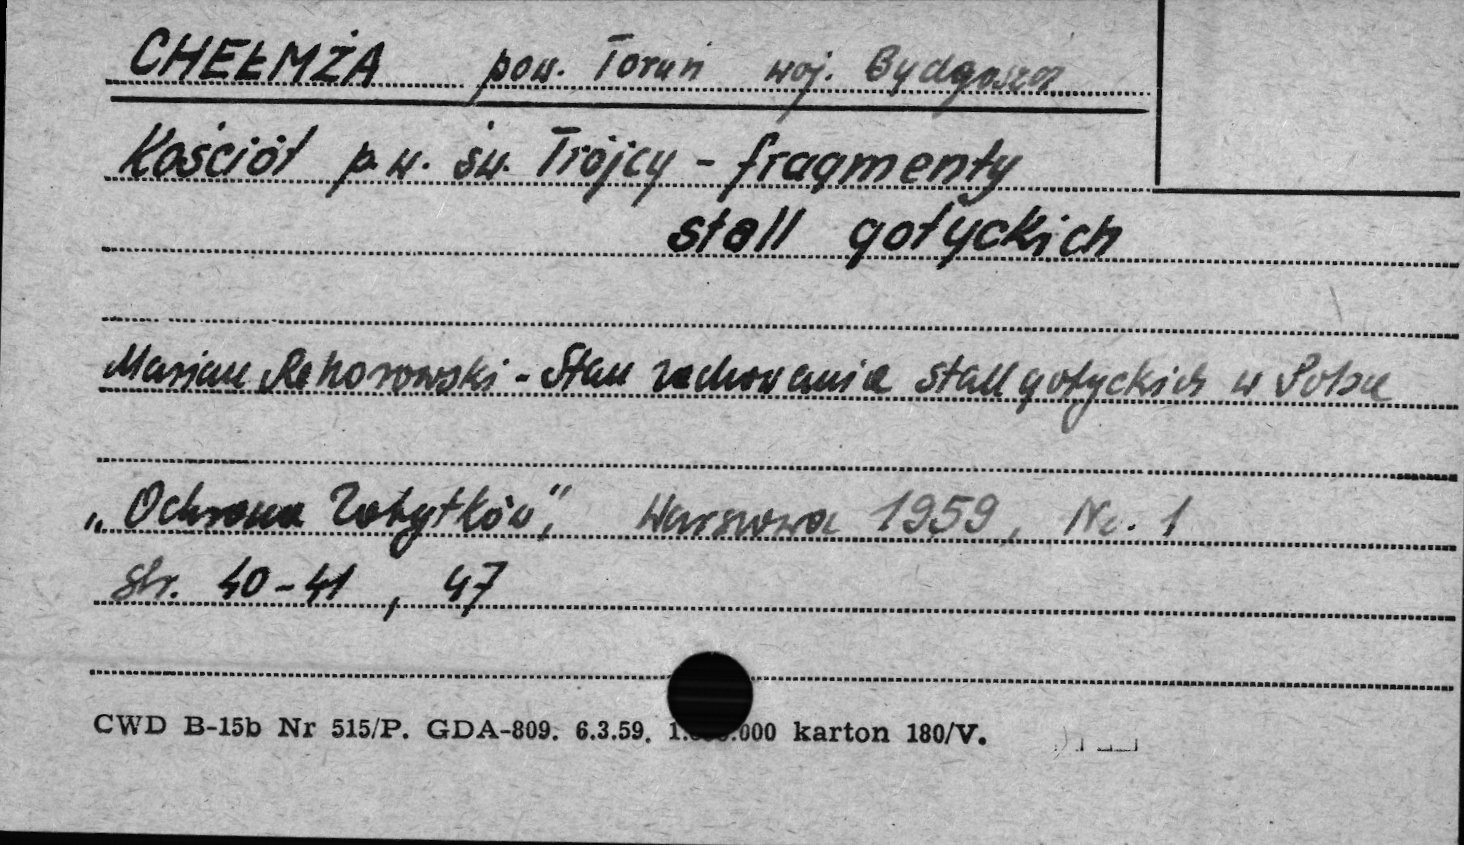 CHEŁMŻA pow. Toruń woj. Bydgoszcz
Kościół p.w. św. Trójcy - fragmenty
stall gotyckich
Marian Rehorowski - Stan zachowania stall gotyckich w Polsce
„Ochrona Zabytków", Warszawa 1959, Nr. 1
str. 40-41, 47
CWD B-15b Nr 515/P. GDA-809. 6.3.59. 1.000.000 karton 180/V.